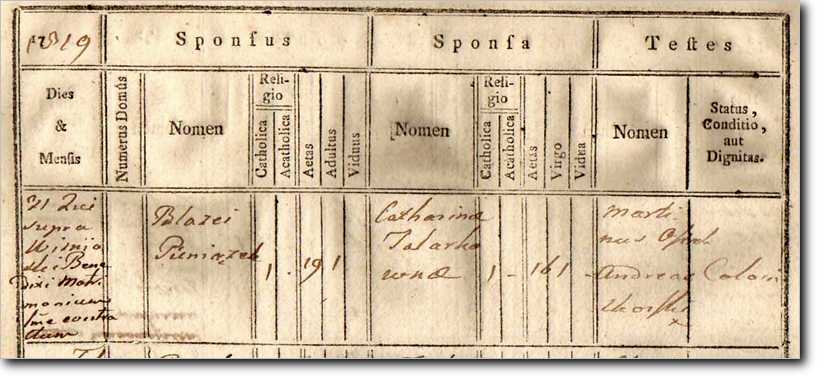 1819 Sponsus Sponsa Testes
Dies & Mensis
Numerus Domûs
Nomen
Religio
Catholica
Acatholica
Aetas
Adultus
Viduus
Nomen
Religio
Catholica
Acatholica
Aetas
Virgo
Vidua
Nomen
Status, Conditio, aut Dignitas.
supra
Bene
dixi Matri
monium
contra
ctum
Blazei
Pieniązek
1 - 19 1
Catharina
Talarko
wna
1 - 16 1
Marti
nus
Andreas
Coloni